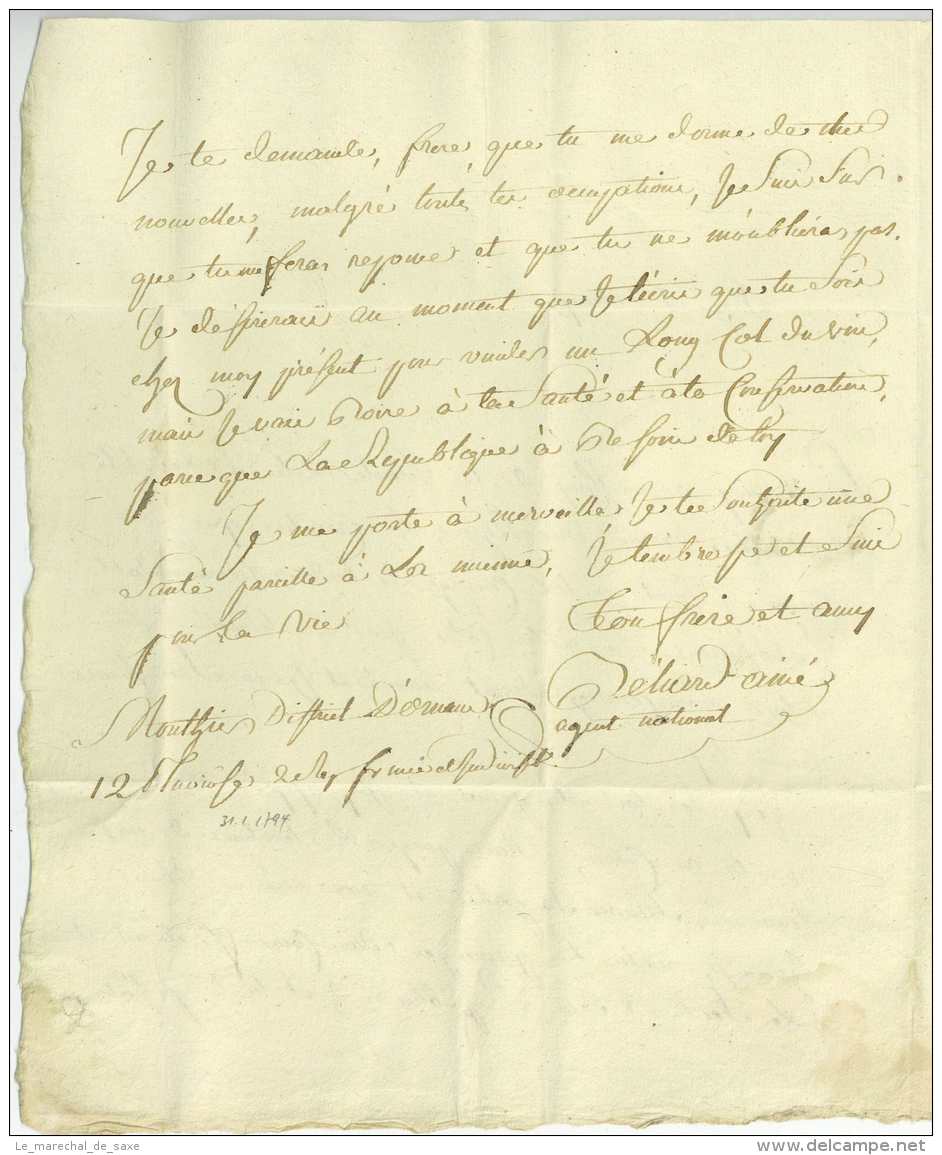 Je te demande, frere, que tu me donne de thes
nouvelles, malgré touts tes occupations, Je Suis Sur.
que tu me feras reponse et que tu ne m'oubliéras pas.
Je désirerais au moment que Je técris que tu Sois
chez moy présent pour vuider un Long Col du vin,
mais Je vais Boire à ta Santé et à ta Conservation,
parceque La République à Besoin de toy
Je me porte à merveille, Je te Souhaite une
Santé pareille à La mienne, Je t'embrasse et Suis
pour La vie
Ton frère et amy
ainé
agent national
Mouthier District D'ornans
12 Pluviôse 2e
31.1.1794
Le_marechal_de_saxe
delcampe.net